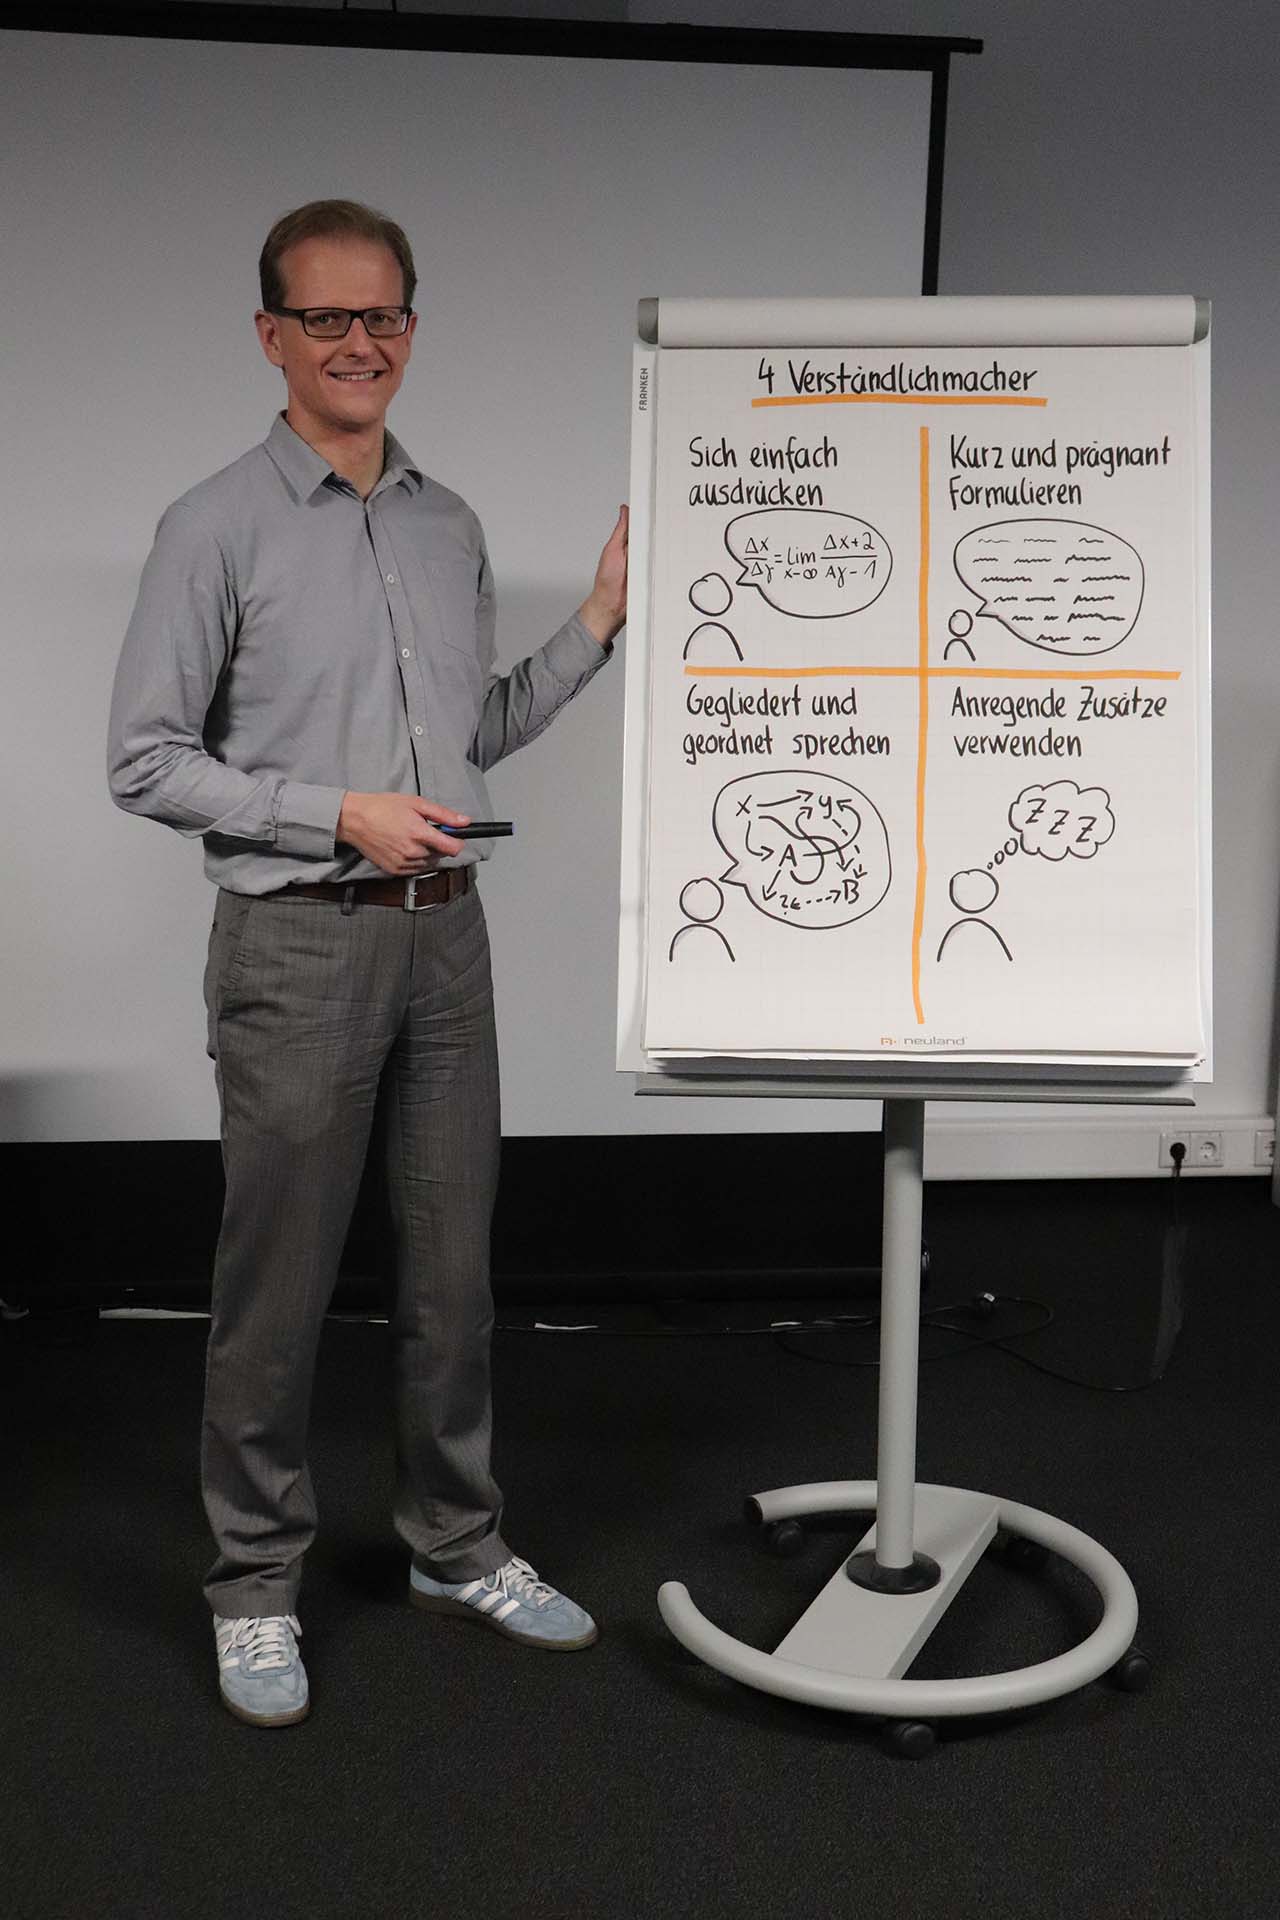 FRANKEN
4 Verständlichmacher
Sich einfach
ausdrücken
Δx/Δy = Lim x-∞ Δx+2/Δy-1
Kurz und prägnant
formulieren
Gegliedert und
geordnet sprechen
X Y
A
? € B
Anregende Zusätze
verwenden
Z Z Z
neuland